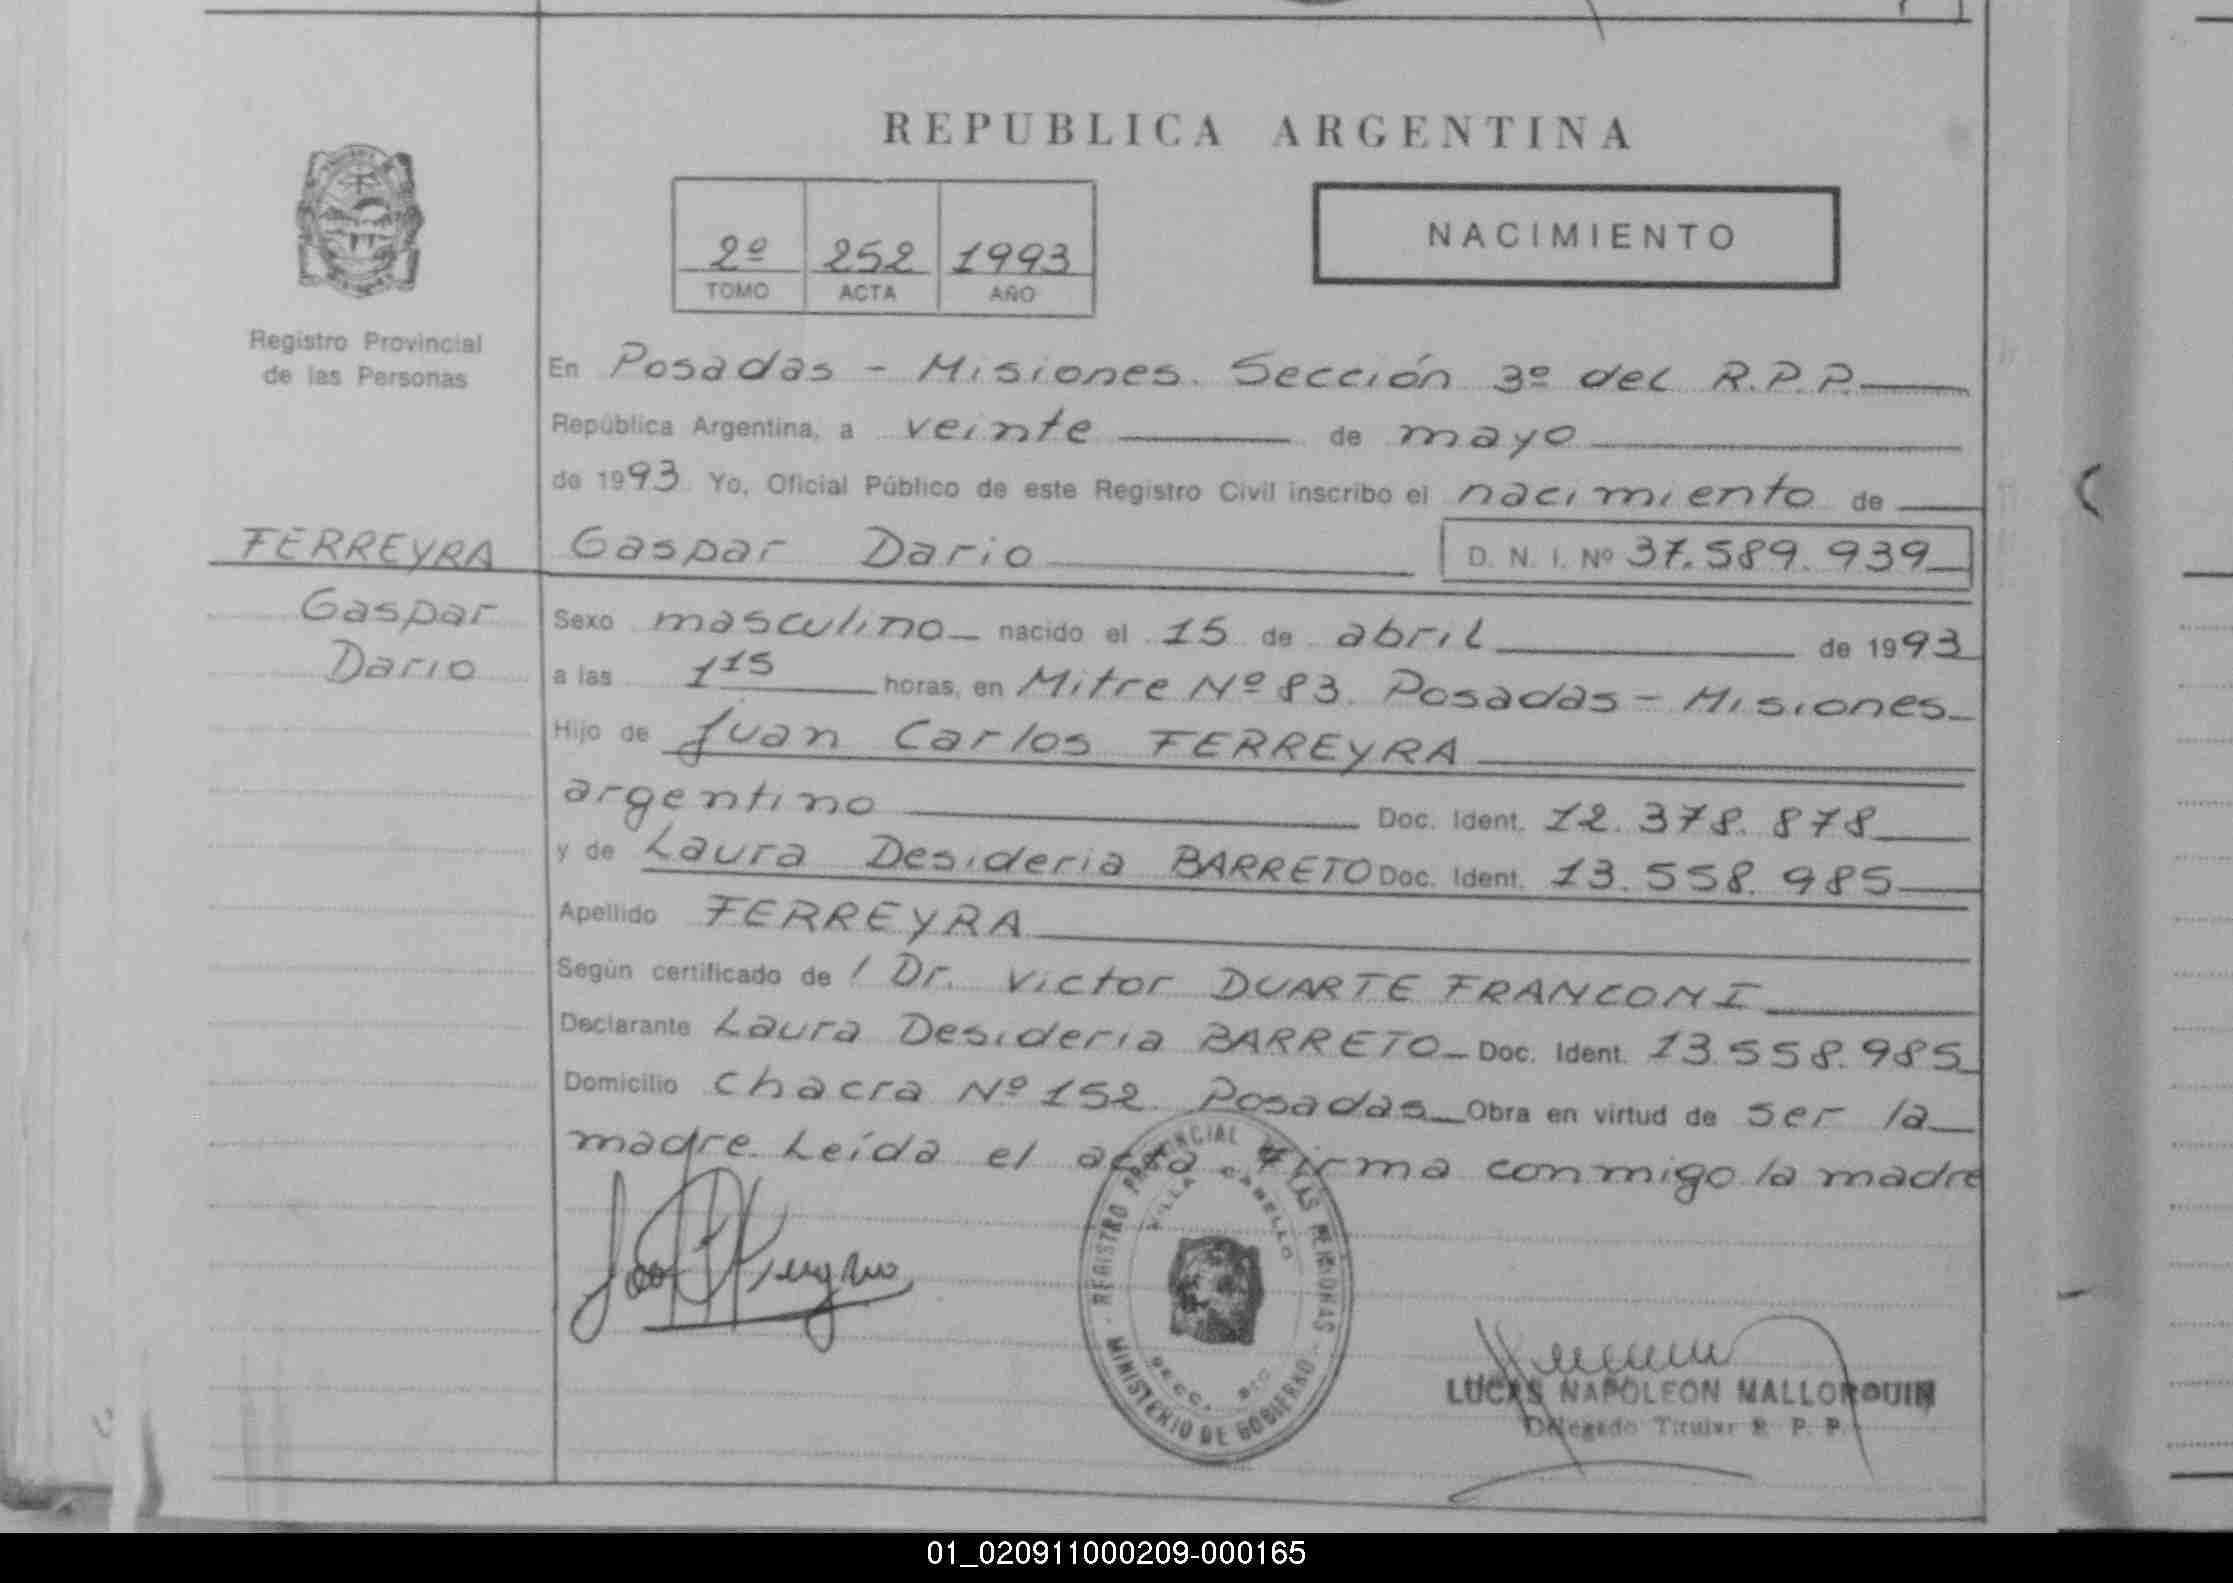 REPUBLICA ARGENTINA
2º 252 1993
TOMO ACTA AÑO
NACIMIENTO
Registro Provincial
de las Personas
En Posadas - Misiones. Sección 3º del R.P.P.
República Argentina, a veinte de mayo
de 1993. Yo, Oficial Público de este Registro Civil inscribo el nacimiento de
FERREYRA Gaspar Dario D. N. I. Nº 37.589.939
Gaspar
Dario
Sexo masculino nacido el 15 de abril de 1993
a las 1 15 horas, en Mitre Nº 83. Posadas - Misiones
Hijo de Juan Carlos FERREYRA
argentino Doc. Ident. 12.378.878
y de Laura Desideria BARRETO Doc. Ident. 13.558.985
Apellido FERREYRA
Según certificado de / Dr. Victor DUARTE FRANCONI
Declarante Laura Desideria BARRETO Doc. Ident. 13.558.985
Domicilio Chacra Nº 152. Posadas Obra en virtud de ser la
madre. Leída el acta firma conmigo la madre
REGISTRO PROVINCIAL DE LAS PERSONAS
VILLA CABELLO
SECC.
MINISTERIO DE GOBIERNO
LUCAS NAPOLEON MALLORQUIN
Delegado Titular R. P. P.
01_020911000209-000165